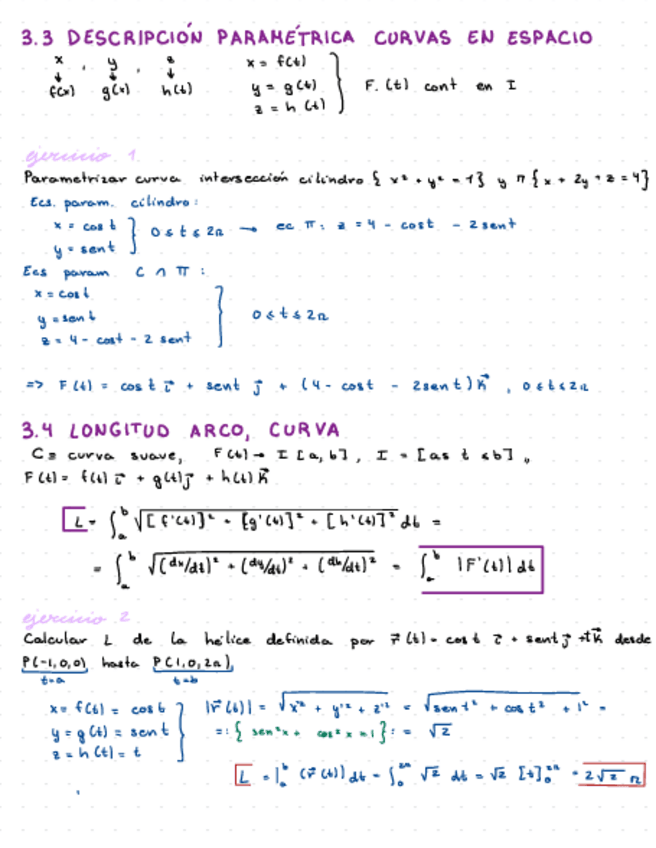 3.3 DESCRIPCIÓN PARAMÉTRICA CURVAS EN ESPACIO
x , y , z
↓ ↓ ↓
f(x) g(x) h(t)
x = f(t)
y = g(t)
z = h(t)
F(t) cont en I
ejercicio 1
Parametrizar curva intersección cilindro { x² + y² = 1} y π {x + 2y + z = 4}
Ecs. param. cilindro:
x = cos t
y = sen t
0 ≤ t ≤ 2π → ec π: z = 4 - cost - 2sent
Ecs param C ∩ π :
x = cos t
y = sen t
z = 4 - cost - 2 sent
0 ≤ t ≤ 2π
=> F(t) = cos t i⃗ + sent j⃗ + (4 - cost - 2sent) k⃗ , 0 ≤ t ≤ 2π
3.4 LONGITUD ARCO, CURVA
C ≡ curva suave, F(t) → I [a, b] , I = [a ≤ t ≤ b] ,
F(t) = f(t) i⃗ + g(t) j⃗ + h(t) k⃗
L = ∫ₐᵇ √([f'(t)]² + [g'(t)]² + [h'(t)]²) dt =
= ∫ₐᵇ √((dx/dt)² + (dy/dt)² + (dh/dt)²) = ∫ₐᵇ |F'(t)| dt
ejercicio 2
Calcular L de la hélice definida por r⃗(t) = cos t i⃗ + sent j⃗ + t k⃗ desde
P(-1,0,0) hasta P(1,0,2π),
t=a t=b
x = f(t) = cos t
y = g(t) = sen t
z = h(t) = t
|r⃗'(t)| = √(x'² + y'² + z'²) = √(sen t² + cos t² + 1²) =
=: { sen²x + cos²x = 1 } : = √2
L = ∫ₐᵇ (r⃗'(t)) dt = ∫₀²ᵖ √2 dt = √2 [t]₀²ᵖ = 2√2 π